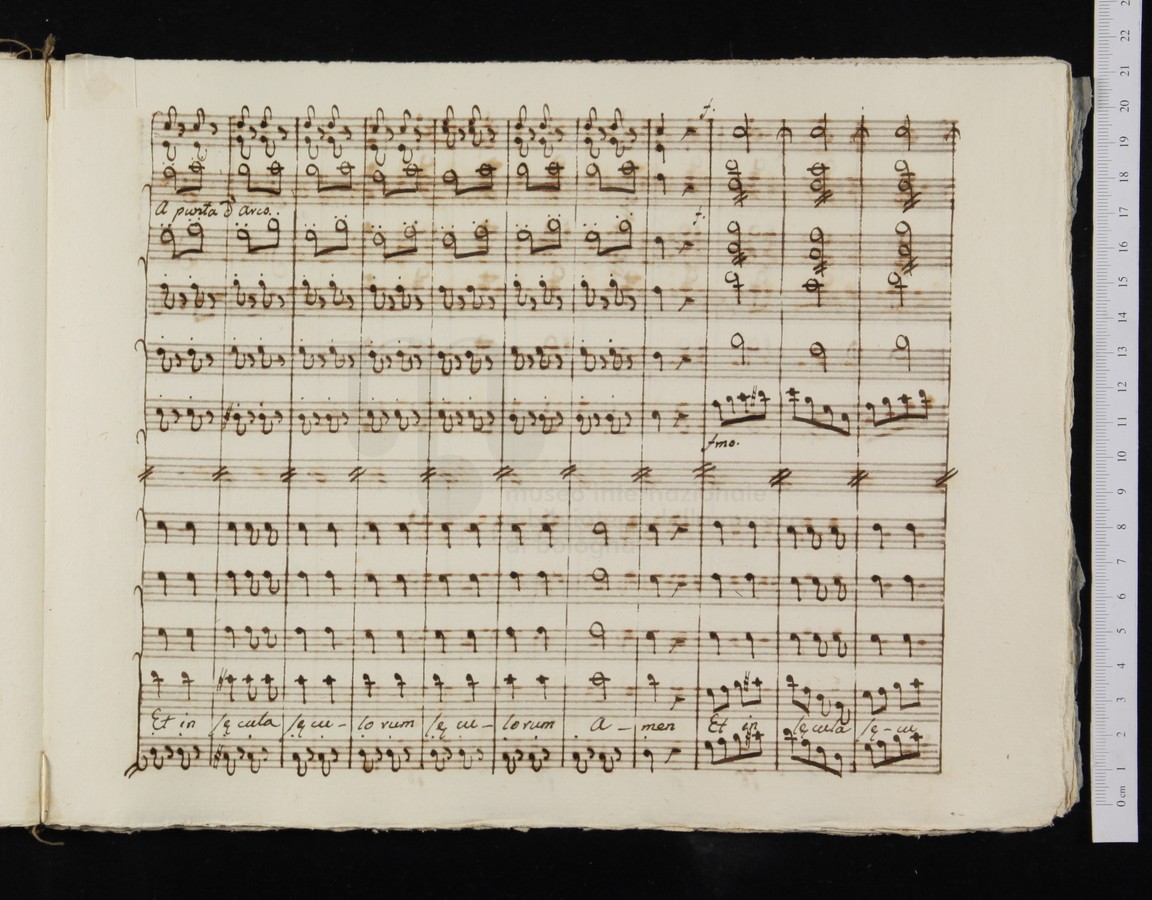 f.
A punta d'Arco.
f.
fmo.
museo internazionale
e biblioteca della musica
di bologna
Et in sęcula sęcu - lorum sęcu - lorum A - men Et in sęcula sę - cu
0 cm 1 2 3 4 5 6 7 8 9 10 11 12 13 14 15 16 17 18 19 20 21 22